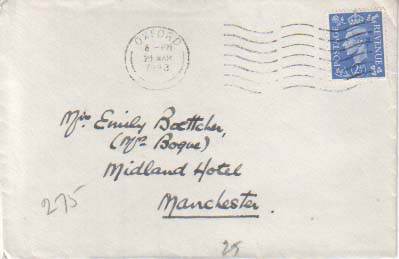 OXFORD
6 - PM
MAR
1943
POSTAGE REVENUE
2½D
Miss Emily Boettcher,
(Mrs Bogue)
Midland Hotel
Manchester.
275
25